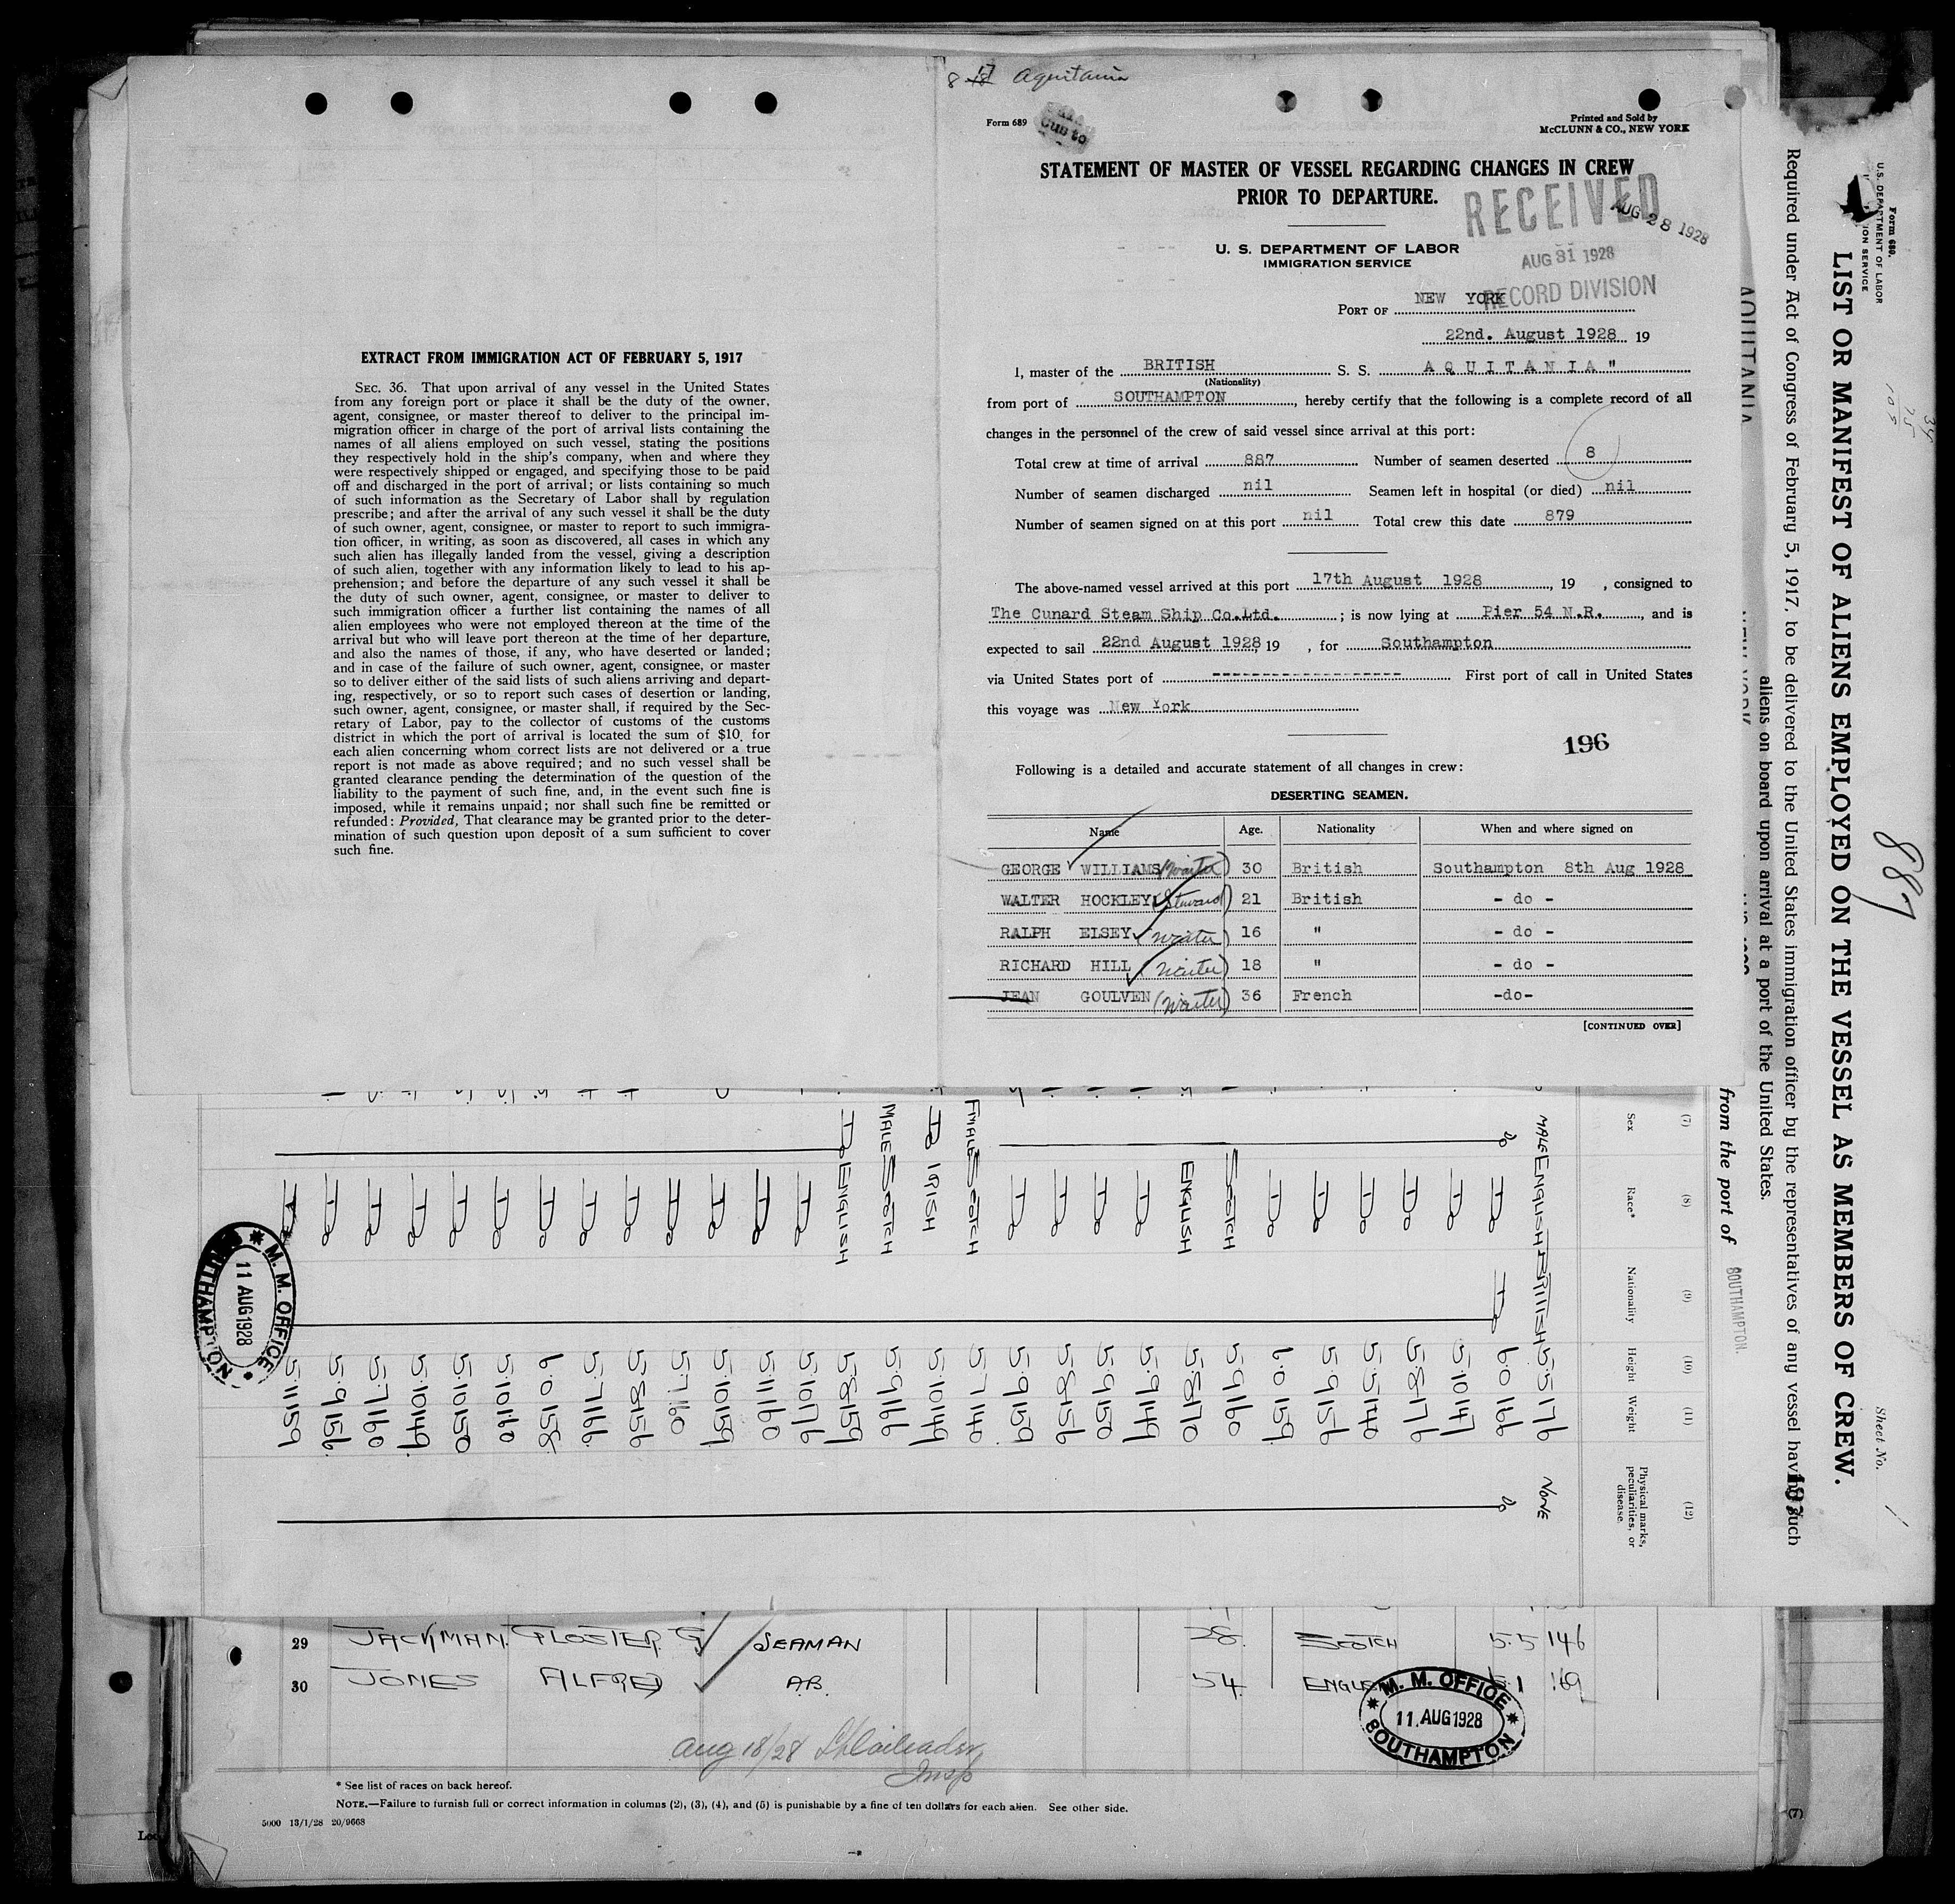 8 17 Aquitania
Form 689
Printed and Sold by
McCLUNN & CO., NEW YORK
STATEMENT OF MASTER OF VESSEL REGARDING CHANGES IN CREW
PRIOR TO DEPARTURE.
RECEIVED
AUG 28 1928
AUG 31 1928
RECORD DIVISION
U. S. DEPARTMENT OF LABOR
IMMIGRATION SERVICE
PORT OF NEW YORK
22nd. August 1928 19
I, master of the BRITISH S. S. AQUITANIA"
(Nationality)
from port of SOUTHAMPTON, hereby certify that the following is a complete record of all
changes in the personnel of the crew of said vessel since arrival at this port:
Total crew at time of arrival 887 Number of seamen deserted 8
Number of seamen discharged nil Seamen left in hospital (or died) nil
Number of seamen signed on at this port nil Total crew this date 879
The above-named vessel arrived at this port 17th August 1928, 19 , consigned to
The Cunard Steam Ship Co.Ltd. ; is now lying at Pier 54 N.R., and is
expected to sail 22nd August 1928, 19 , for Southampton
via United States port of -------------------- First port of call in United States
this voyage was New York
196
Following is a detailed and accurate statement of all changes in crew:
DESERTING SEAMEN.
Name Age. Nationality When and where signed on
GEORGE WILLIAMS (Waiter) 30 British Southampton 8th Aug 1928
WALTER HOCKLEY (Steward) 21 British - do -
RALPH ELSEY (Waiter) 16 " - do -
RICHARD HILL (Waiter) 18 " - do -
JEAN GOULVEN (Waiter) 36 French -do-
[CONTINUED OVER]
EXTRACT FROM IMMIGRATION ACT OF FEBRUARY 5, 1917
SEC. 36. That upon arrival of any vessel in the United States
from any foreign port or place it shall be the duty of the owner,
agent, consignee, or master thereof to deliver to the principal im-
migration officer in charge of the port of arrival lists containing the
names of all aliens employed on such vessel, stating the positions
they respectively hold in the ship's company, when and where they
were respectively shipped or engaged, and specifying those to be paid
off and discharged in the port of arrival; or lists containing so much
of such information as the Secretary of Labor shall by regulation
prescribe; and after the arrival of any such vessel it shall be the duty
of such owner, agent, consignee, or master to report to such immigra-
tion officer, in writing, as soon as discovered, all cases in which any
such alien has illegally landed from the vessel, giving a description
of such alien, together with any information likely to lead to his ap-
prehension; and before the departure of any such vessel it shall be
the duty of such owner, agent, consignee, or master to deliver to
such immigration officer a further list containing the names of all
alien employees who were not employed thereon at the time of the
arrival but who will leave port thereon at the time of her departure,
and also the names of those, if any, who have deserted or landed;
and in case of the failure of such owner, agent, consignee, or master
so to deliver either of the said lists of such aliens arriving and depart-
ing, respectively, or so to report such cases of desertion or landing,
such owner, agent, consignee, or master shall, if required by the Sec-
retary of Labor, pay to the collector of customs of the customs
district in which the port of arrival is located the sum of $10 for
each alien concerning whom correct lists are not delivered or a true
report is not made as above required; and no such vessel shall be
granted clearance pending the determination of the question of the
liability to the payment of such fine, and, in the event such fine is
imposed, while it remains unpaid; nor shall such fine be remitted or
refunded: Provided, That clearance may be granted prior to the deter-
mination of such question upon deposit of a sum sufficient to cover
such fine.
Form 689.
U.S. DEPARTMENT OF LABOR
ION SERVICE
Sheet No. 1
887
LIST OR MANIFEST OF ALIENS EMPLOYED ON THE VESSEL AS MEMBERS OF CREW.
Required under Act of Congress of February 5, 1917, to be delivered to the United States immigration officer by the representatives of any vessel having such
aliens on board upon arrival at a port of the United States.
AQUITANIA
NEW YORK
from the port of SOUTHAMPTON.
(7) (8) (9) (10) (11) (12)
Sex Race* Nationality Height Weight Physical marks, peculiarities, or disease
MALE ENGLISH BRITISH 5.5 176 NONE
Do Do Do 6.0 146 Do
Do 5.10 147
Do 5.8 176
Do 5.5 140
Do 5.9 156
Do 6.0 159
SCOTCH 5.9 160
ENGLISH 5.8 170
Do 5.9 149
Do 5.9 150
Do 5.8 156
Do 5.9 159
FMALE SCOTCH 5.7 140
Do IRISH 5.10 149
MALE SCOTCH 5.9 166
Do ENGLISH 5.8 159
Do 5.10 176
Do 5.11 160
Do 5.10 159
Do 5.7 160
Do 5.8 156
Do 5.7 166
Do 6.0 158
Do 5.10 160
Do 5.10 150
Do 5.10 149
Do 5.7 160
Do 5.9 156
Do 5.11 159
M. M. OFFICE
11 AUG 1928
SOUTHAMPTON
29 JACKMAN. GLOSTER G SEAMAN 38. SCOTCH 5.5 146
30 JONES ALFRED A.B. 54. ENGLISH 5.1 169
M. M. OFFICE
11. AUG 1928
SOUTHAMPTON
Aug 18/28
Insp
* See list of races on back hereof.
NOTE.—Failure to furnish full or correct information in columns (2), (3), (4), and (5) is punishable by a fine of ten dollars for each alien. See other side.
5000 13/1/28 20/9668
(7)